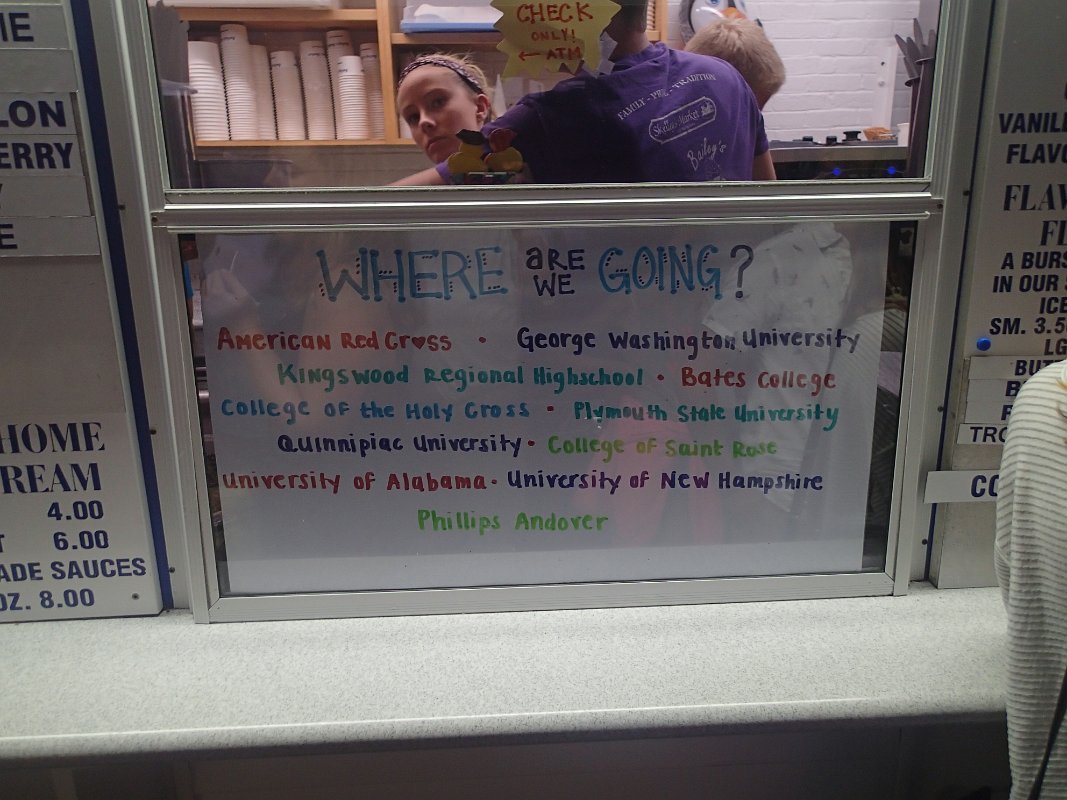 CHECK
ONLY!
← ATM
FAMILY - PRIDE - TRADITION
Skelley's Market
Bailey's
WHERE ARE WE GOING?
American Red Cross • George Washington University
Kingswood Regional Highschool • Bates College
College of the Holy Cross • Plymouth State University
Quinnipiac University • College of Saint Rose
University of Alabama • University of New Hampshire
Phillips Andover
IE
LON
ERRY
Y
E
HOME
REAM
4.00
T 6.00
ADE SAUCES
OZ. 8.00
VANIL
FLAVO
FLAV
FL
A BURS
IN OUR S
ICE
SM. 3.5
LG
BUT
B
TRO
CO